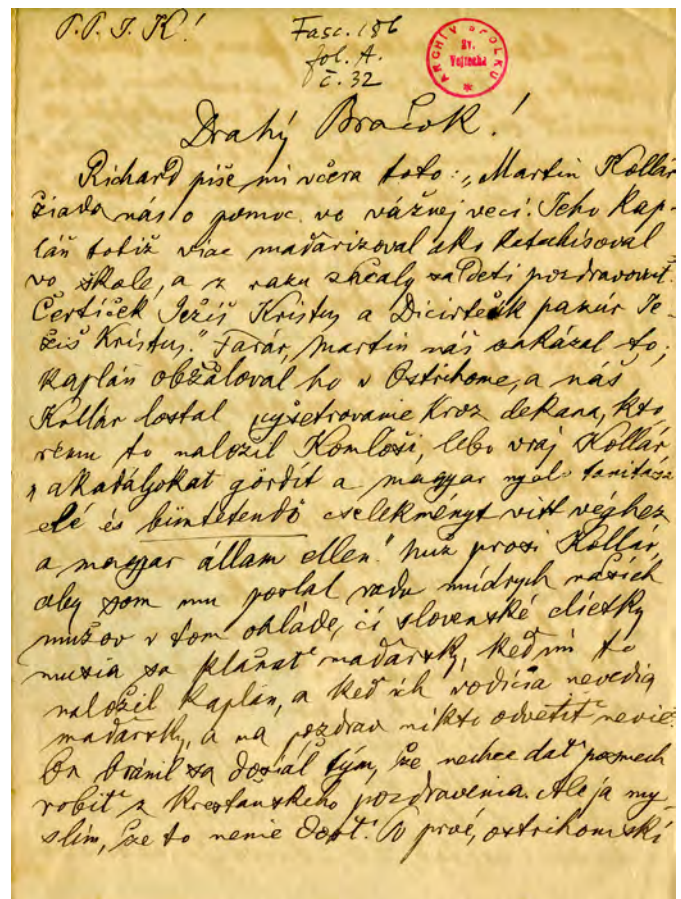 P. P. J. K!
Fasc. 186
fol. A.
č. 32
ARCHÍV SPOLKU
Sv.
Vojtecha
Drahý Bračok!
Richard píše mi včera toto: „Martin Kollár
žiada nás o pomoc vo vážnej veci. Jeho kap-
lán totiž viac maďarizoval ako katechisoval
vo škole, a z razu začaly sa deti pozdravovať:
Čertíček Ježíš Kristus a Dicirtešk pazúr Je-
žiš Kristus." Farár, Martin náš zakázal to;
kaplán obžaloval ho v Ostrihome, a náš
Kollár dostal vyšetrovanie kroz dekana, kto
rému to naložil Komloši, lebo vraj Kollár
„akadályokat gördít a magyar nyelv tanitása
elé és büntetendő cselekményt vitt véghez
a magyar állam ellen." Nuž prosí Kollár,
aby som mu poslal radu múdrych našich
mužov v tom ohľade, či slovenské dietky
musia sa klaňať maďarsky, keď im to
naložil kaplán, a keď ich rodičia nevedia
maďarsky, a na pozdrav nikto odvetiť nevie.
On bránil sa dosiaľ tým, že nechce dať posmech
robiť z kresťanského pozdravenia. Ale ja my
slím, že to nenie dosť! Po prvé, ostrihomskí